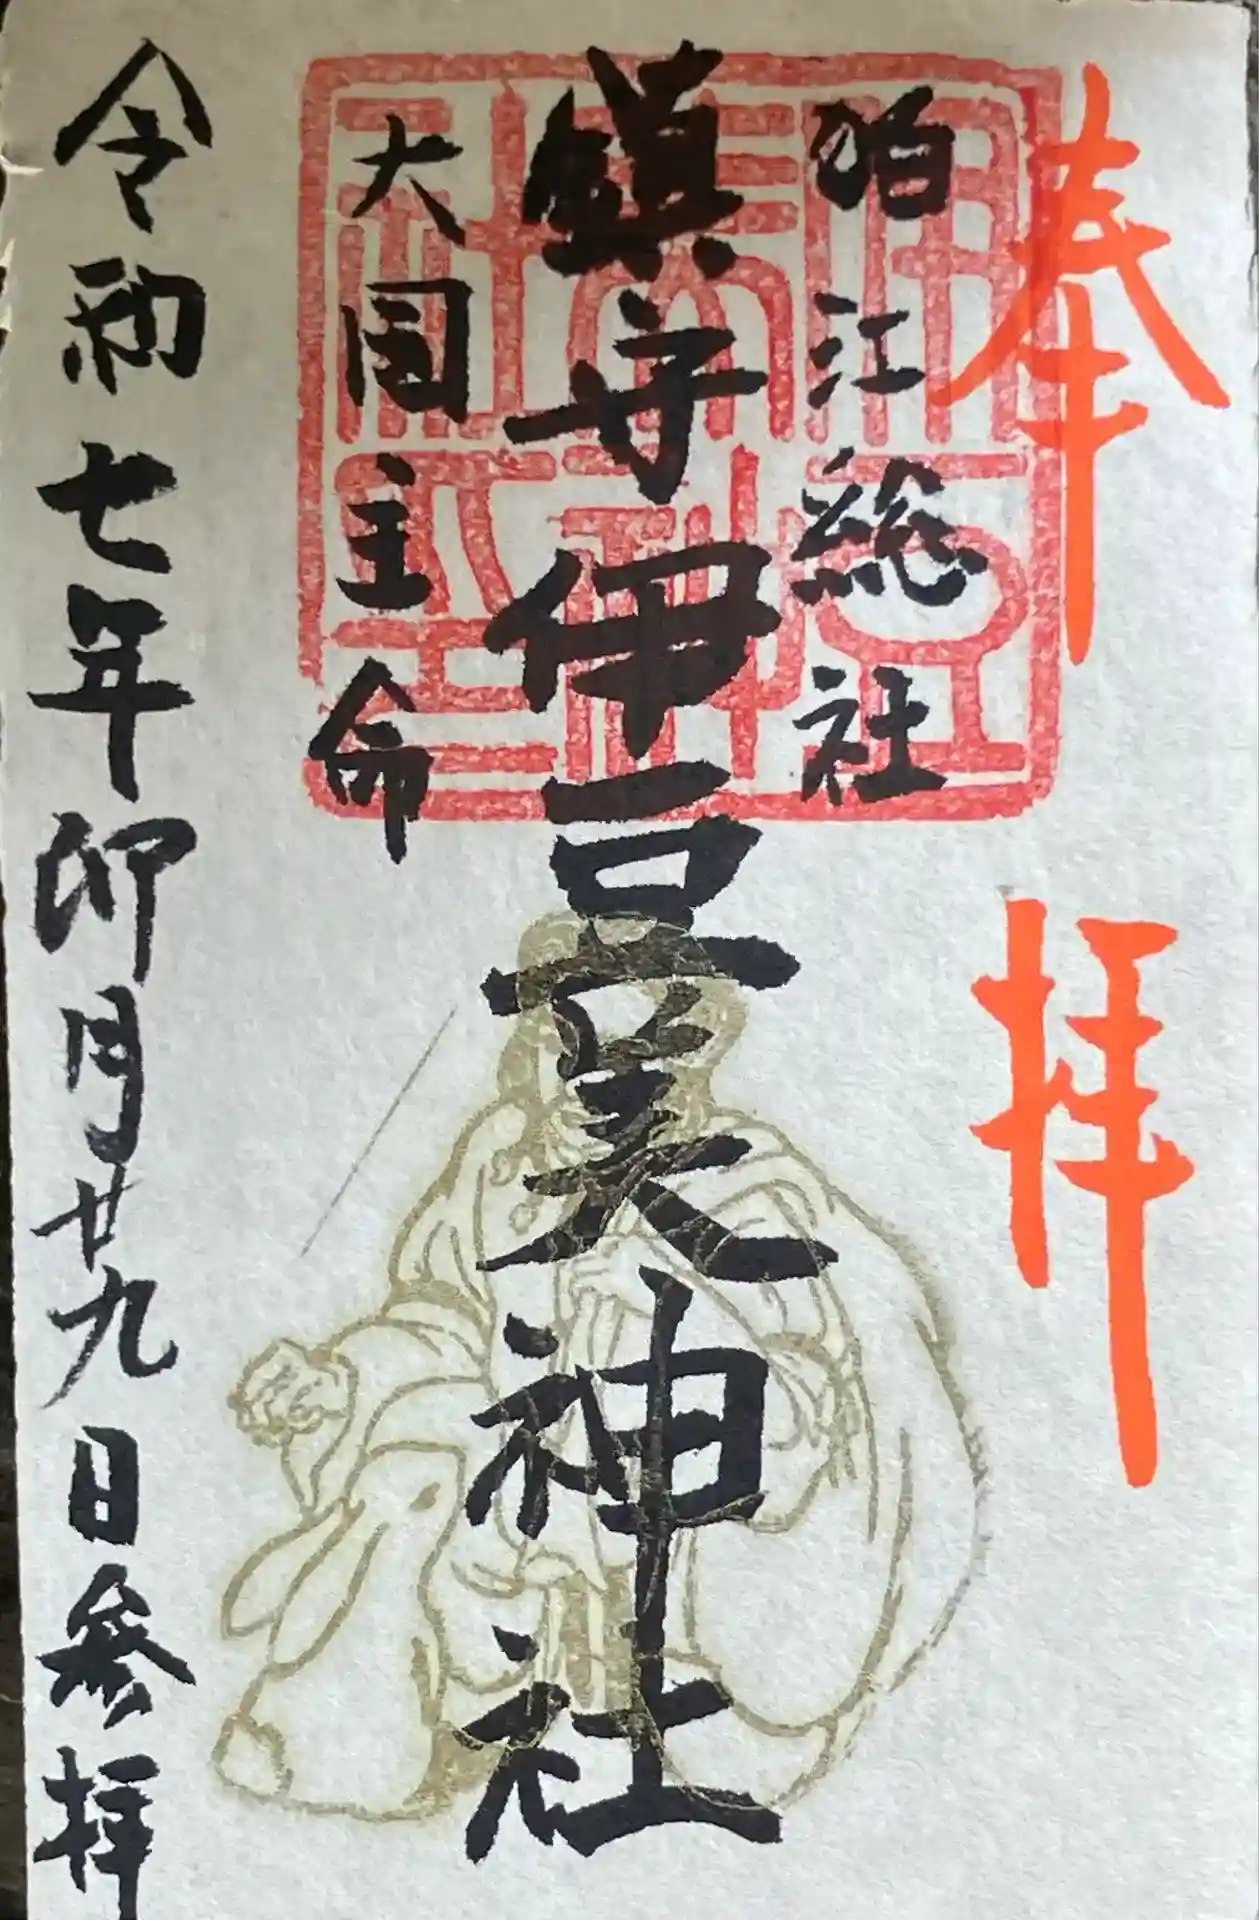 奉拝
狛江総社
鎮守伊豆美神社
大国主命
令和七年卯月廿九日参拝